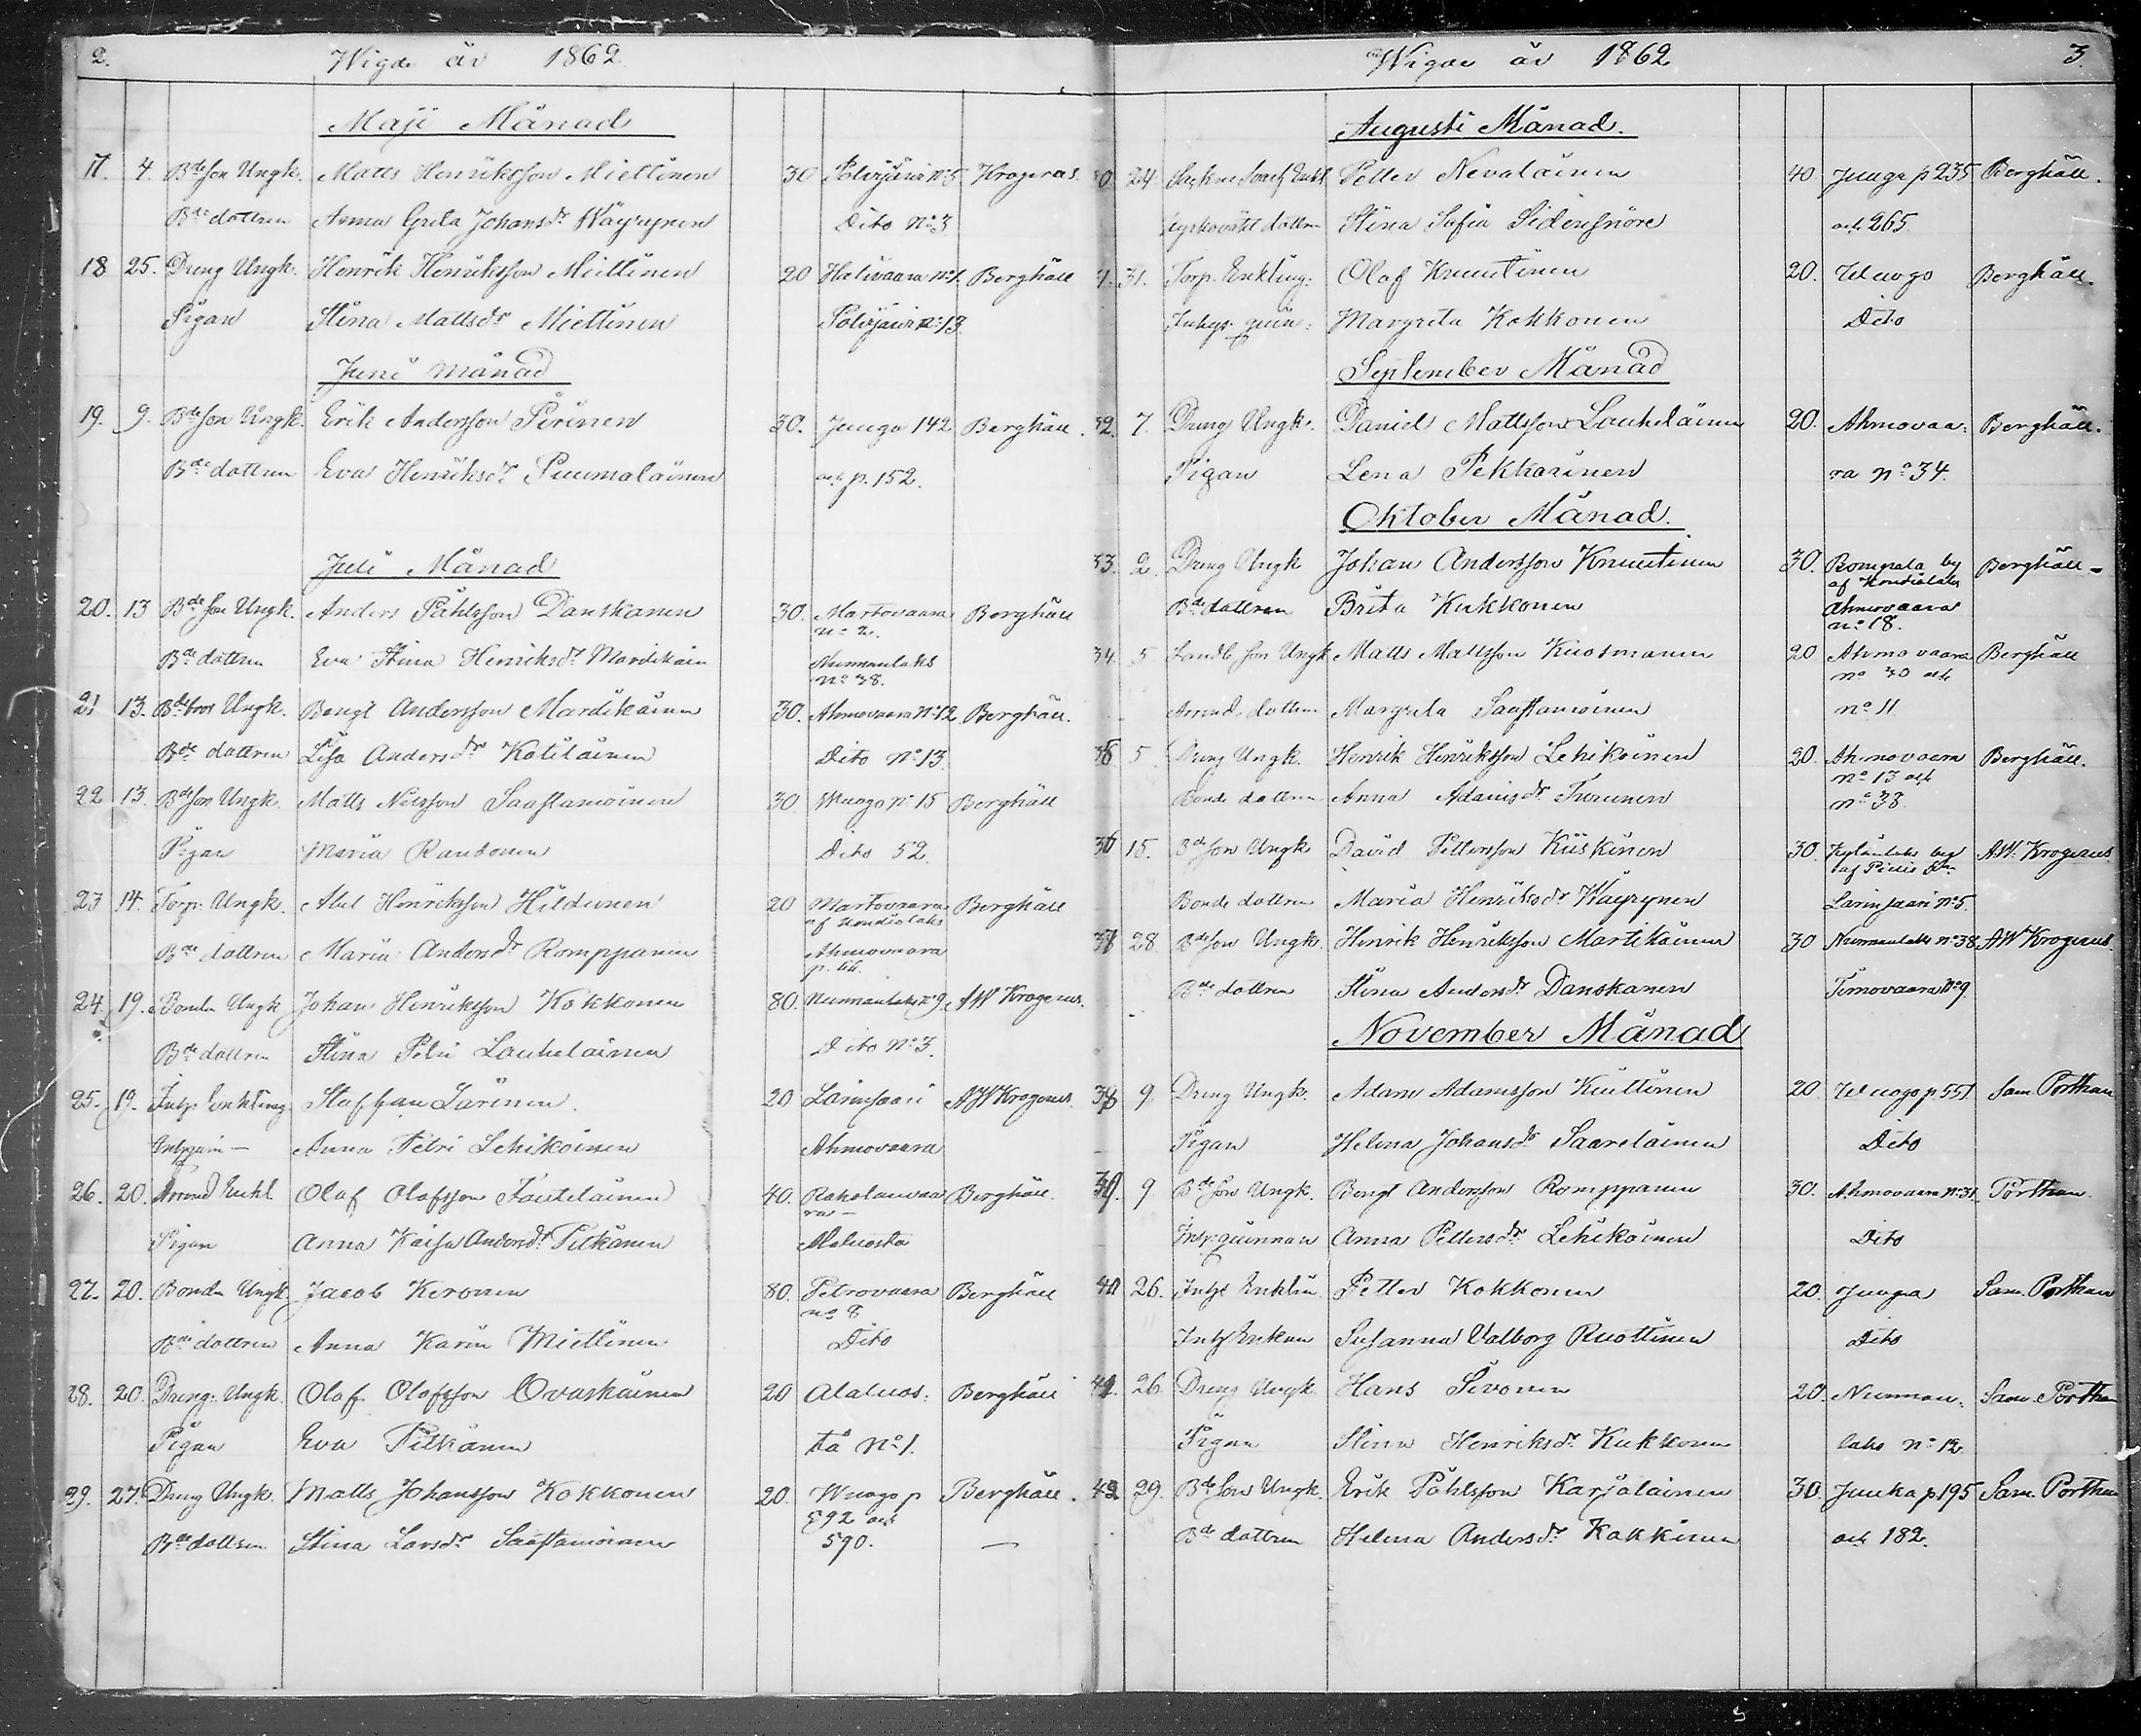 2.
Wigde år 1862.
Maji Månad
17. 4. Bde Son Ungk. Matts Henriksson Miettinen 30 Polvijärvi No 5 Krogerus.
Bde dottren Anna Greta Johansdr Wäyrynen Dito No 3
18 25. Dreng Ungk. Henrik Henriksson Miettinen 20 Halivaara No 1. Berghäll
Pigan Stina Mattsdr Miettinen Polvijärvi No 13
Juni månad
19. 9. Bde Son Ungk. Erik Andersson Pirinen 30. Juuga 142 Berghäll.
Bde dottren Eva Henriksdr Puumalainen och p. 152.
Juli Månad
20. 13 Bde Son Ungk. Anders Påhlsson Danskanen 30. Martovaara Berghäll
No 2.
Bde dottren Eva Stina Henriksdr Mardikain Nunnanlaks
No 38.
21 13. Bde bror Ungk. Bengt Andersson Mardikainen 30. Ahmovaara No 12 Berghäll.
Bde dottren Lisa Andersdr Kotilainen Dito No 13.
22 13. Bde Son Ungk. Matts Nilsson Saastamoinen 30 Wuogo p. 15 Berghäll
Pigan Maria Rautonen Dito 52.
23 14. Torp. Ungk. Abel Henriksson Hildunen 20 Martovaara Berghäll
af Kondiolaks
Bde dottren Maria Andersdr Romppanen Ahmovaara
24. 19. Bonden Ungk Johan Henriksson Kokkonen 80. Nunnanlaks No 9. AW Krogerus.
Bde dottren Stina Petri Lauhelainen Dito No 3.
25. 19. Inhs. Enkling Staffan Larinen 20 Larinsaari AW Krogerus.
Anna Petri Lehikoinen Ahmovaara
26. 20. Arrend Enkl. Olof Olofsson Tautelainen 40. Raholanvaa Berghäll.
ra
Pigan Anna Kaisa Andersdr Pitkänen Alaluosta
27. 20. Bonden Ungk. Jacob Keronen 80. Petrovaara Berghäll
No 8
Bde dottren Anna Karin Miettinen Dito
28. 20. Dreng. Ungk. Olof Olofsson Ovaskainen 20 Alaluos: Berghäll
Pigan Eva Pitkänen ta No 1.
29. 27. Dreng Ungk. Matts Johansson Kokkonen 20. Wuogo p Berghäll.
592 och
Bde dottren Stina Larsdr Saastamoinen 590. —
3.
Wigde år 1862
Augusti Månad.
30. 24. Enkl Petter Nevalainen 40. Juuga p 235 Berghäll.
dottren Stina Sofia Sidensnöre och 265
31. Torp. Enkling. Olof Knuutinen 20. Wuogo Berghäll.
Inhys. Margreta Kokkonen Dito
September Månad
32. 7. Dreng Ungk. Daniel Mattsson Lauhelainen 20. Ahmovaa: Berghäll.
Pigan Lena Pekkarinen ra No 34.
Oktober Månad.
33. 2. Dreng Ungk Johan Andersson Knuutinen 30. Romppala by Berghäll
af Kondiolaks
Bde dottren Brita Kukkonen Ahmovaara
No 18.
34. 5 Landb. Son Ungk Matts Mattsson Kuosmanen 20 Ahmovaara Berghäll
No 30 och
Arrend. dottren Margreta Saastamoinen No 11
35 5 Dreng Ungk. Henrik Henriksson Lehikoinen 20. Ahmovaara Berghäll.
No 13 och
Bonde dottren Anna Adamsdr Turunen No 38
36 15. Bde Son Ungk David Pettersson Kiiskinen 30. AW. Krogerus
Bonde dottren Maria Henriksdr Wäyrynen Larinsaari No 5.
37 28 Bde Son Ungk. Henrik Henriksson Martikainen 30 Nunnanlaks No 38 AW Krogerus.
Bde dottren Stina Andersdr Danskanen Timovaara No 9.
November Månad
38 9 Dreng Ungk. Adam Adamsson Kuittinen 20 Wuogo p. 551 Sam Porthan
Pigan Helena Johansdr Saarelainen Dito
39. 9 Bde Son Ungk. Bengt Andersson Romppanen 30. Ahmovaara No 31. Porthan.
Inhs. quinnan Anna Pettersdr Lehikoinen Dito
40 26. Inhs Enklin Petter Kokkonen 20. Juuga Sam. Porthan
Inhs Enkan Susanna Valborg Ruottinen Dito
41. 26. Dreng Ungk. Hans Sivonen 20. Nunnan: Sam. Porthan
Pigan Stina Henriksdr Kukkonen laks No 12
42 29. Bde Son Ungk. Erik Påhlsson Karjalainen 30. Juuka p 195 Sam. Porthan
Bde dottren Helena Andersdr Kakkinen och 182.